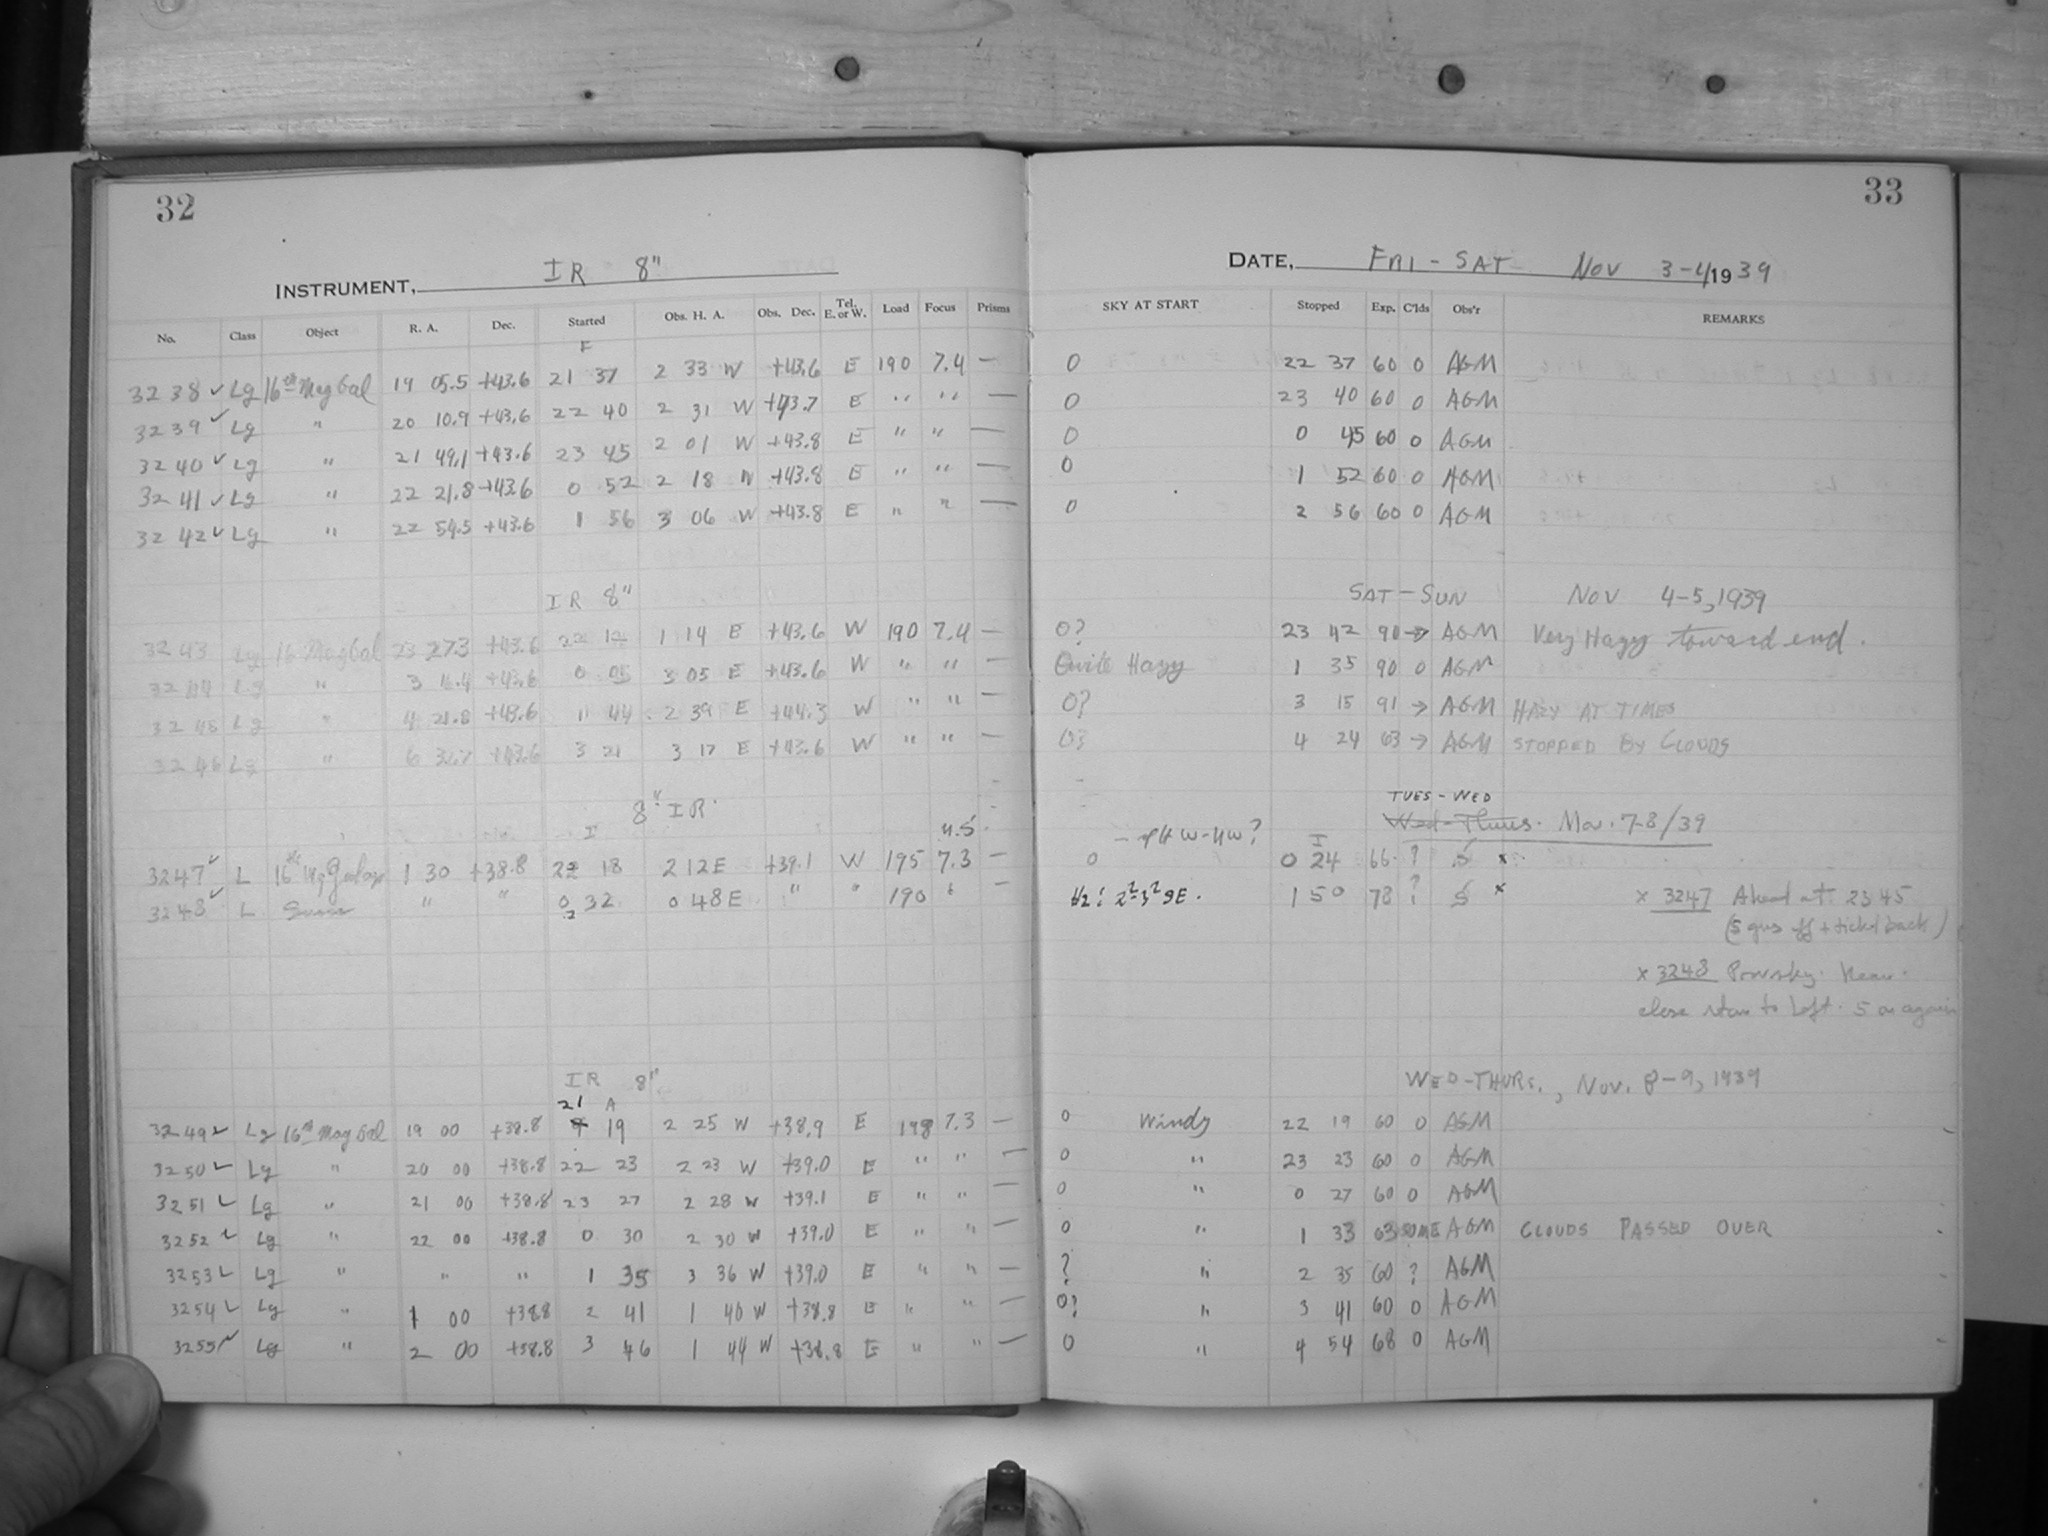 32
INSTRUMENT, IR 8"
No. Class Object R. A. Dec. Started Obs. H. A. Obs. Dec. Tel. E. or W. Load Focus Prisms
3238 ✓ Lg 16th Mag Gal 19 05.5 +43.6 21 37 2 33 W +43.6 E 190 7.4 —
3239 ✓ Lg " 20 10.9 +43.6 22 40 2 31 W +43.7 E " " —
3240 ✓ Lg " 21 49.1 +43.6 23 45 2 01 W +43.8 E " " —
3241 ✓ Lg " 22 21.8 +43.6 0 52 2 18 W +43.8 E " " —
3242 ✓ Lg " 22 54.5 +43.6 1 56 3 06 W +43.8 E " " —
IR 8"
3243 Lg 16 Mag Gal 23 27.3 +43.6 22 12 1 14 E +43.6 W 190 7.4 —
3244 Lg " 3 +43.6 0 05 3 05 E +43.6 W " " —
3245 Lg " 4 21.8 +43.6 1 44 2 39 E +44.3 W " " —
3246 Lg " 6 +43.6 3 21 3 17 E +43.6 W " " —
8" IR
3247 ✓ L 16th 1 30 +38.8 22 18 2 12 E +39.1 W 195 7.3 —
3248 ✓ L " " 0 32 0 48 E " " 190 —
IR 8"
21 A
3249 ✓ Lg 16th Mag Gal 19 00 +38.8 19 2 25 W +38.9 E 198 7.3 —
3250 ✓ Lg " 20 00 +38.8 22 23 2 23 W +39.0 E " " —
3251 ✓ Lg " 21 00 +38.8 23 27 2 28 W +39.1 E " " —
3252 ✓ Lg " 22 00 +38.8 0 30 2 30 W +39.0 E " " —
3253 ✓ Lg " " " 1 35 3 36 W +39.0 E " " —
3254 ✓ Lg " 1 00 +38.8 2 41 1 40 W +38.8 E " " —
3255 ✓ Lg " 2 00 +38.8 3 46 1 44 W +38.8 E " " —
33
DATE, FRI - SAT NOV 3-4 1939
SKY AT START Stopped Exp. C'lds Obs'r REMARKS
0 22 37 60 0 AGM
0 23 40 60 0 AGM
0 0 45 60 0 AGM
0 1 52 60 0 AGM
0 2 56 60 0 AGM
SAT - SUN NOV 4-5, 1939
0? 23 42 90 → AGM Very Hazy toward end.
Quite Hazy 1 35 90 0 AGM
0? 3 15 91 → AGM HAZY AT TIMES
0? 4 24 63 → AGM STOPPED BY CLOUDS
TUES - WED
Wed-Thurs. Nov. 7-8/39
0 0 24 66 ? x
1 50 78 ? x
x 3247 Ahead at 23 45
x 3248
close to left. 5 on again
WED-THURS., NOV. 8-9, 1939
0 Windy 22 19 60 0 AGM
0 " 23 23 60 0 AGM
0 " 0 27 60 0 AGM
0 " 1 33 63 SOME AGM CLOUDS PASSED OVER
? " 2 35 60 ? AGM
0? " 3 41 60 0 AGM
0 " 4 54 68 0 AGM